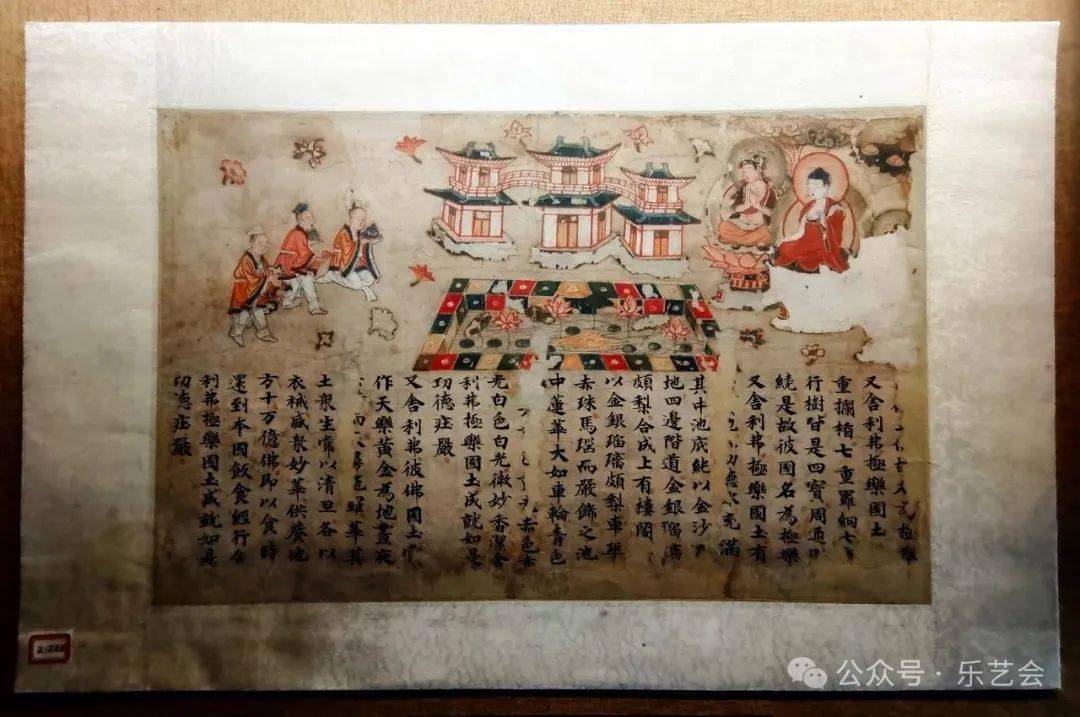 極樂
又舍利弗極樂國土
重攔楯七重羅網七
行樹皆是四寶周
繞是故彼國名為極樂
又舍利弗極樂國土有
德水充滿
其中池底純以金沙
地四邊階道金銀瑠璃
頗梨合成上有樓閣
以金銀瑠璃頗梨車磲
赤珠馬瑙而嚴飾之池
中蓮華大如車輪青色
赤色赤
光白色白光微妙香潔舍
利弗極樂國土成就如是
功德莊嚴
又舍利弗彼佛國土常
作天樂黃金為地晝夜
而羅華其
土眾生常以清旦各以
衣祴盛眾妙華供養他
方十万億佛即以食時
還到本國飯食經行舍
利弗極樂國土成就如是
功德莊嚴
公众号·乐艺会